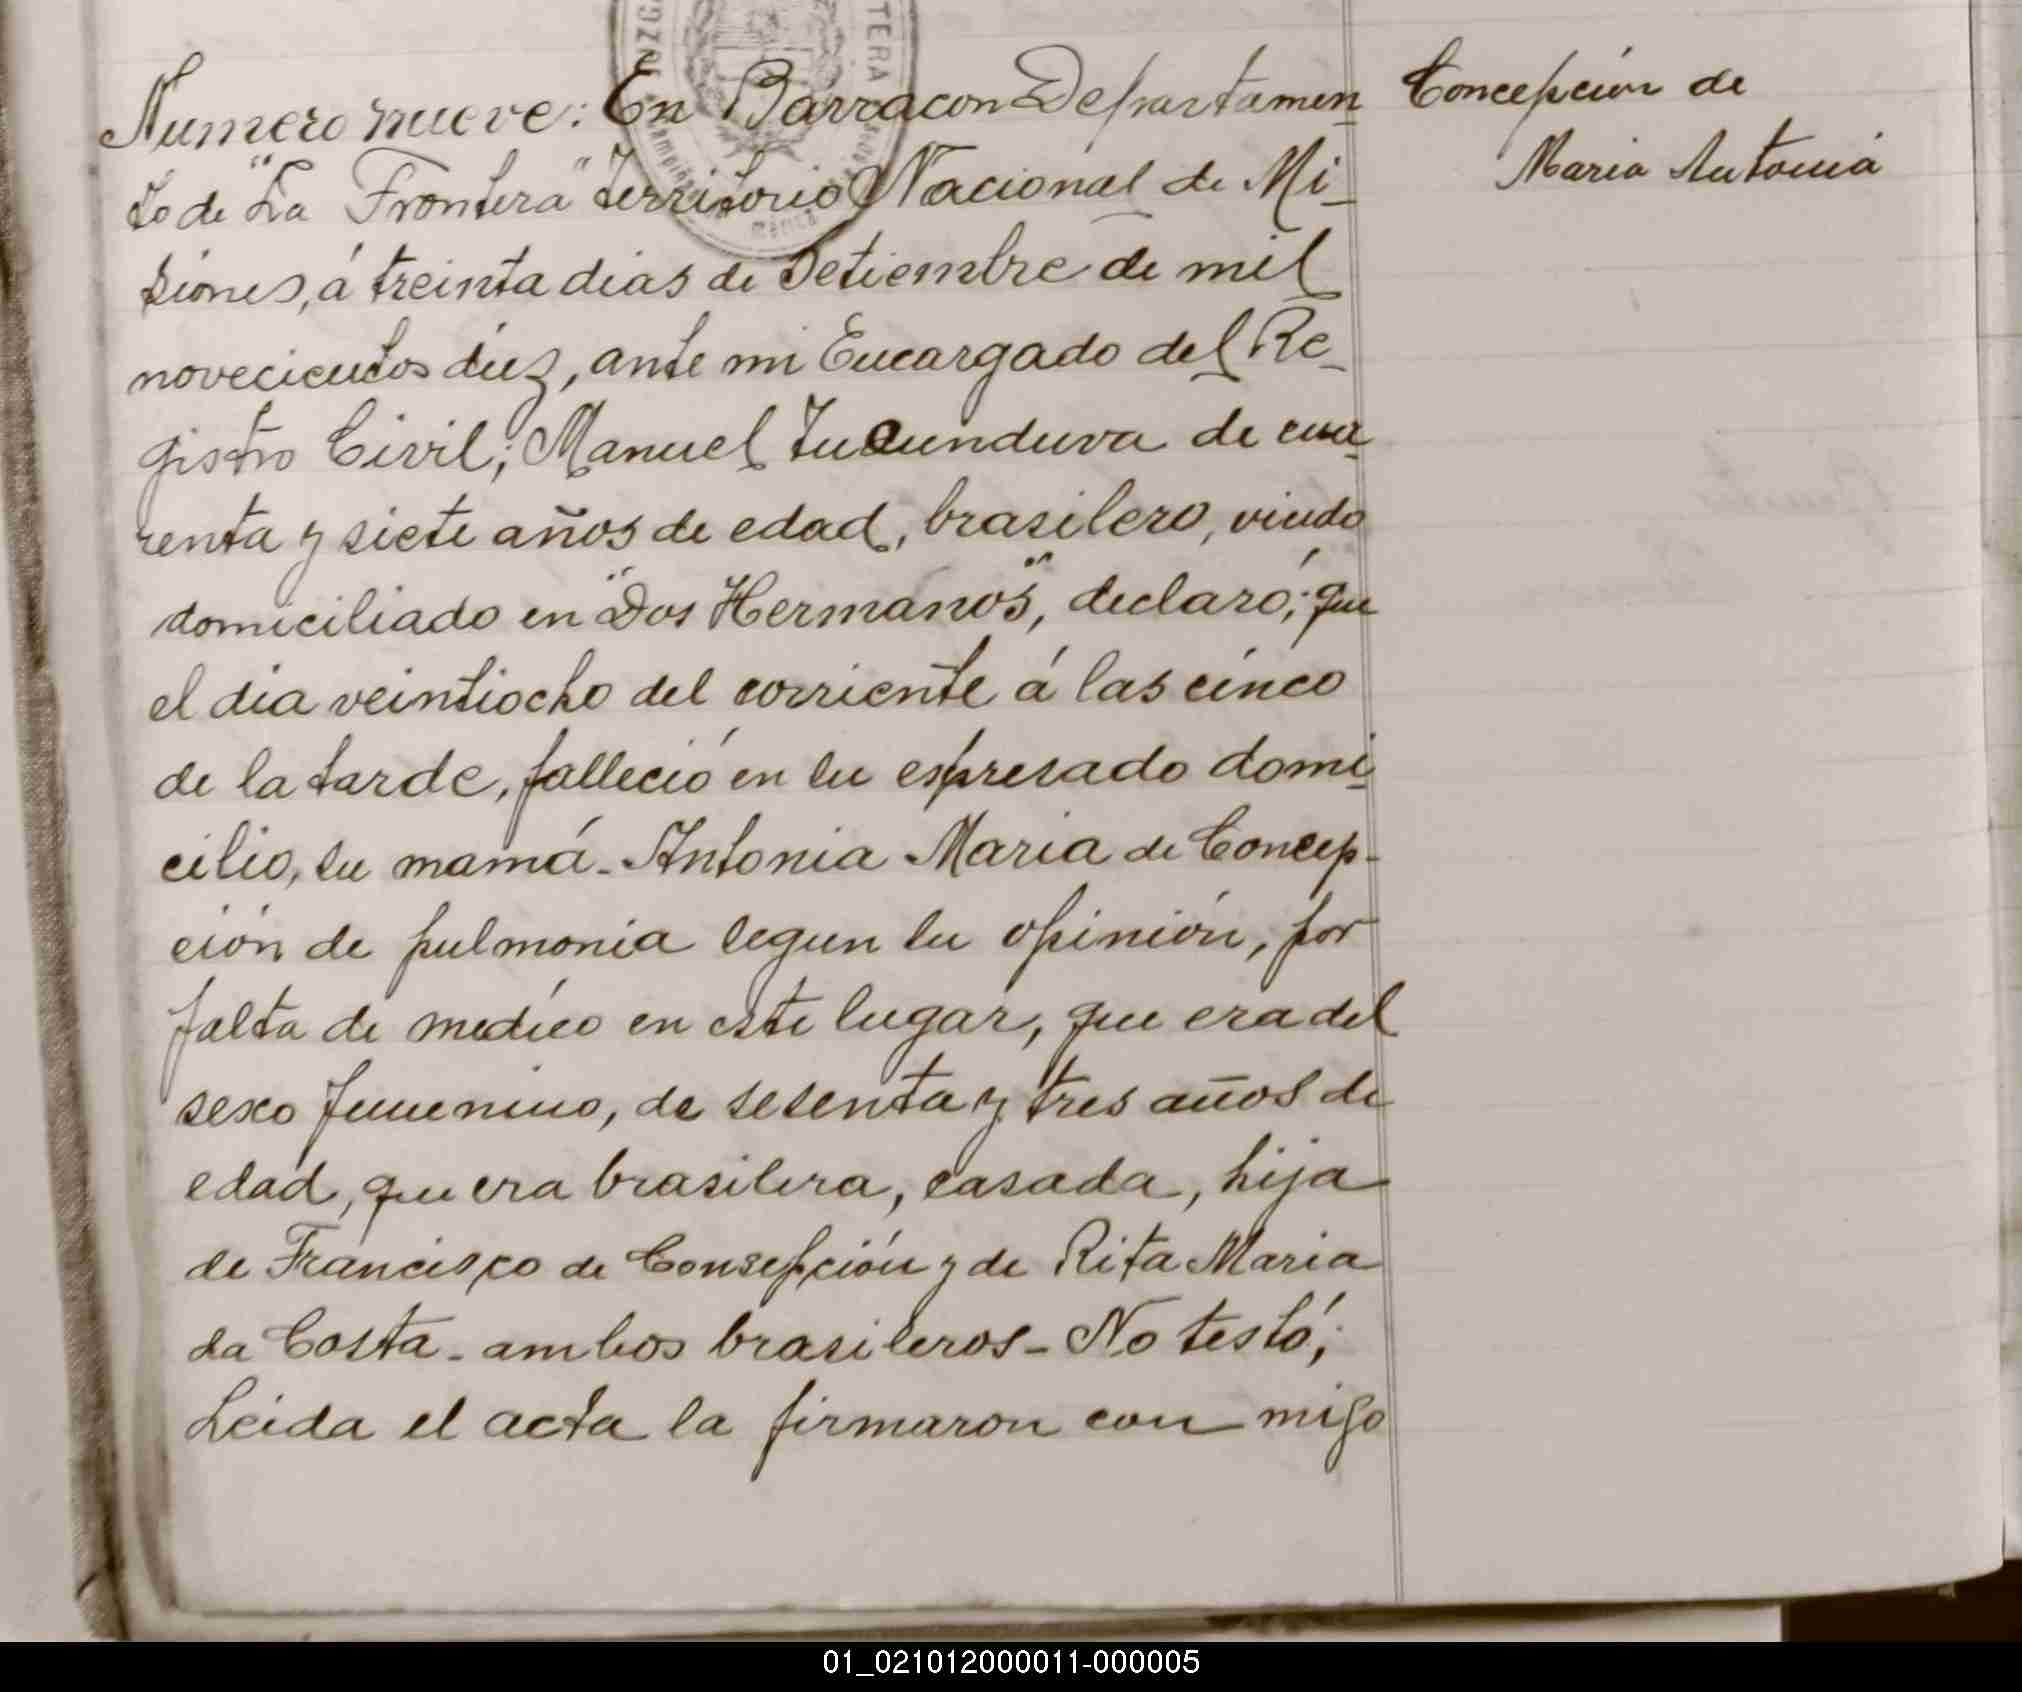 Concepción de
Maria Antonia
Numero nueve: En Barracon Departamen
to de "La Frontera" territorio Nacional de Mi_
siones, á treinta dias de Setiembre de mil
novecientos diez, ante mi Encargado del Re_
gistro Civil; Manuel Tucunduva de cua
renta y siete años de edad, brasilero, viudo
domiciliado en "Dos Hermanos", declaró; que
el dia veintiocho del corriente á las cinco
de la tarde, falleció en su espresado domi
cilio, su mamá - Antonia Maria de Concep-
ción de pulmonia segun su opinión, por
falta de medico en este lugar, que era del
sexo femenino, de sesenta y tres años de
edad, que era brasilera, casada, hija
de Francisco de Consepción y de Rita Maria
da Costa - ambos brasileros - No testó;
Leida el acta la firmaron con migo
01_021012000011-000005